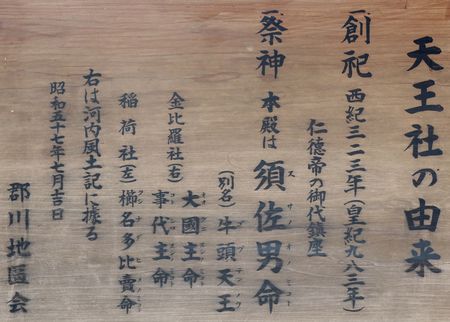 天王社の由来
一、創祀 西紀三二三年(皇紀九八三年)
仁徳帝の御代鎮座
一、祭神 本殿は 須佐男命
(別名)牛頭天王
金比羅社(右) 大國主命
事代主命
稲荷社(左) 櫛名多比賣命
右は河内風土記に據る
昭和五十七年七月吉日
郡川地區会